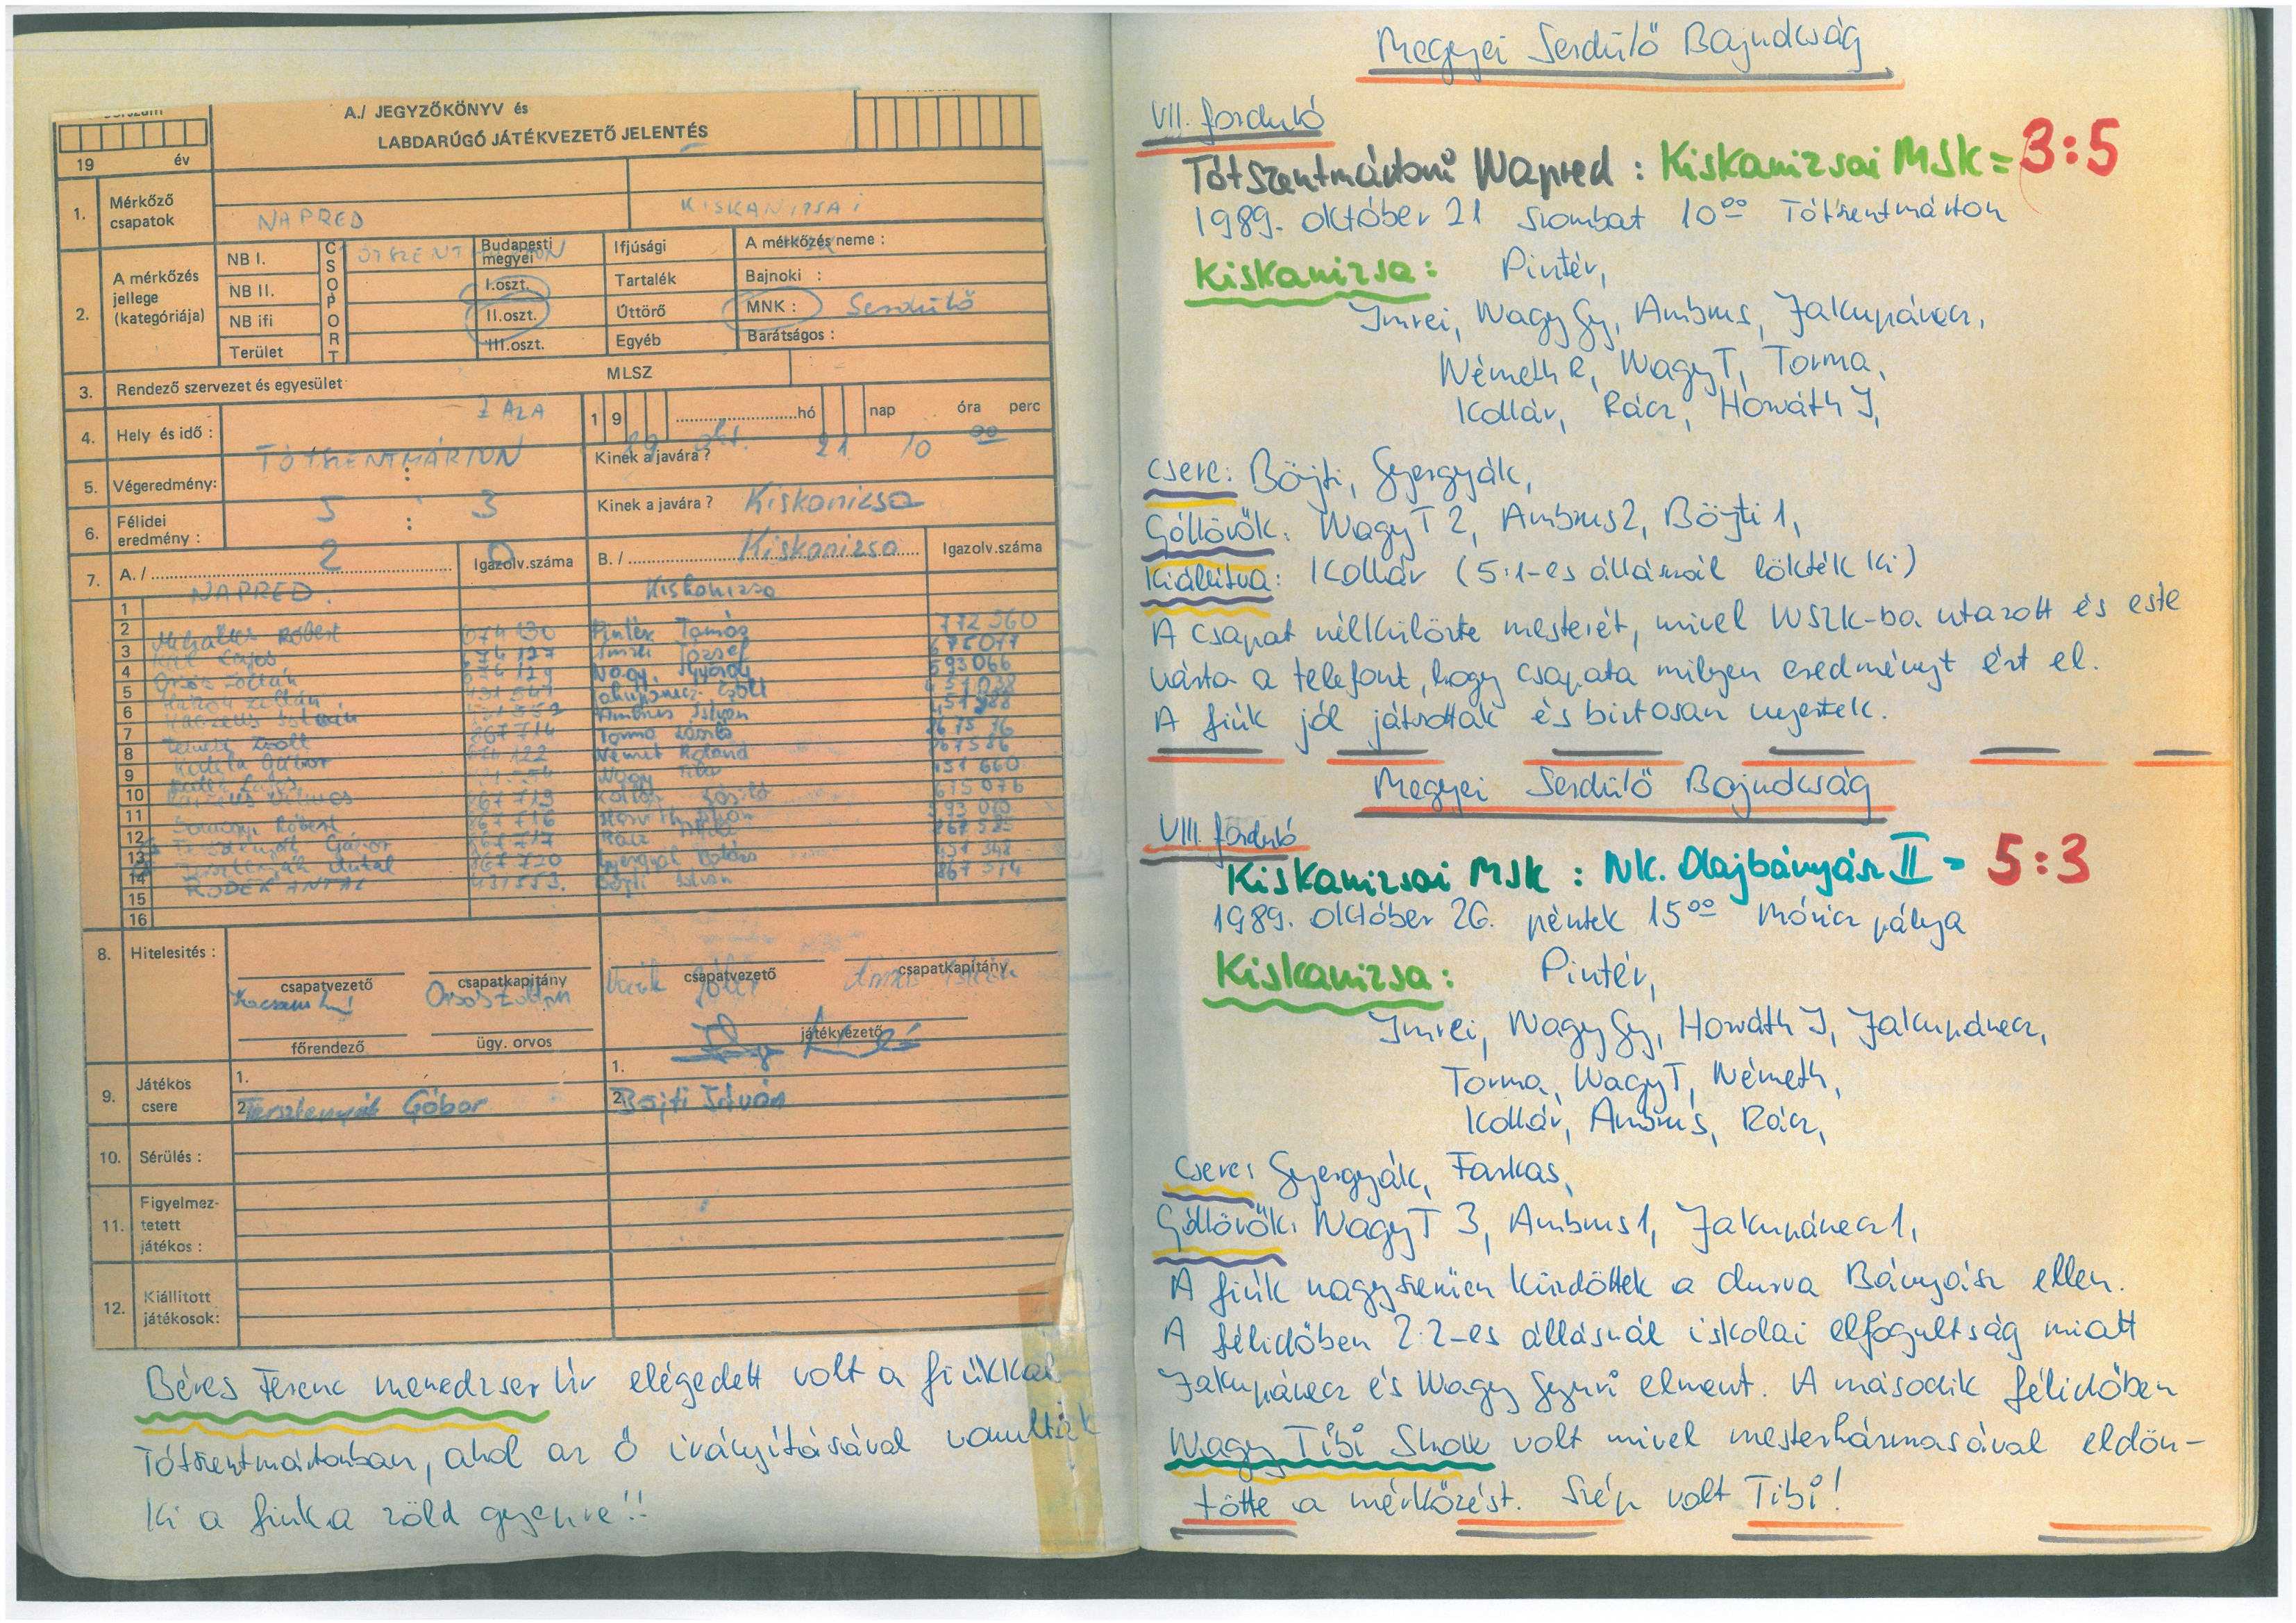 A./ JEGYZŐKÖNYV és
LABDARÚGÓ JÁTÉKVEZETŐ JELENTÉS
19 év
1. Mérkőző csapatok
NAPRED KISKANIZSAI
2. A mérkőzés jellege (kategóriája)
NB I.
NB II.
NB ifi
Terület
CSOPORT
Budapesti megyei
I.oszt.
II.oszt.
III.oszt.
Ifjúsági
Tartalék
Úttörő
Egyéb
A mérkőzés neme :
Bajnoki :
MNK : Serdülő
Barátságos :
3. Rendező szervezet és egyesület MLSZ
ZALA
4. Hely és idő : 19 hó nap óra perc
TÓTSZENTMÁRTON 89 okt. 21 10 00
5. Végeredmény: : Kinek a javára ?
5 3 Kiskanizsa
6. Félidei eredmény : : Kinek a javára ?
2 0 Kiskanizsa
7. A. / Igazolv.száma B. / Igazolv.száma
NAPRED Kiskanizsa
1
2 Róbert 674130 Pintér Tamás 772560
3 Lajos 674127 Imrei József 675077
4 Orsós Zoltán 674129 Nagy György 593066
5 Zoltán Jakupánecz Zsolt
6 István Ambrus István
7 Zsolt 867714 Torma László
8 Gábor 674122 Német Roland 867586
9 Nagy Tibor 451660
10 867719 Kollár László 675076
11 Róbert 867716 Horváth István 593070
12 Gábor 867717 Rácz
13 Antal 867720 Gyergyák Balázs
14 RODEK ANTAL 431553. Böjti István 867574
15
16
8. Hitelesités :
csapatvezető csapatkapitány csapatvezető csapatkapitány
Orsós Zoltán
főrendező ügy. orvos játékvezető
9. Játékos csere 1. 1.
2. Tersztenyák Gábor 2. Böjti István
10. Sérülés :
11. Figyelmeztetett játékos :
12. Kiállított játékosok:
Béres Ferenc menedzser úr elégedett volt a fiúkkal
Tótszentmártonban, ahol az ő irányításával vonultak
ki a fiúk a zöld gyepre!!
Megyei Serdülő Bajnokság
VII. forduló
Tótszentmártoni Napred : Kiskanizsai MSK = 3:5
1989. október 21 szombat 10⁰⁰ Tótszentmárton
Kiskanizsa: Pintér,
Imrei, Nagy Gy, Ambrus, Jakupánecz,
Németh R, Nagy T, Torma,
Kollár, Rácz, Horváth I,
csere: Böjti, Gyergyák,
Góllövők: Nagy T 2, Ambrus 2, Böjti 1,
Kiállítva: Kollár (5:1-es állásnál lökték ki)
A csapat nélkülözte mesterét, mivel NSZK-ba utazott és este
várta a telefont, hogy csapata milyen eredményt ért el.
A fiúk jól játszottak és biztosan nyertek.
Megyei Serdülő Bajnokság
VIII. forduló
Kiskanizsai MSK : Nk. Olajbányász II = 5:3
1989. október 26. péntek 15⁰⁰ Móricz pálya
Kiskanizsa: Pintér,
Imrei, Nagy Gy, Horváth I, Jakupánecz,
Torma, Nagy T, Németh,
Kollár, Ambrus, Rácz,
Csere: Gyergyák, Farkas,
Góllövők: Nagy T 3, Ambrus 1, Jakupánecz 1,
A fiúk nagyszerűen küzdöttek a durva Bányász ellen.
A félidőben 2:2-es állásnál iskolai elfogultság miatt
Jakupánecz és Nagy Gyuri elment. A második félidőben
Nagy Tibi Show volt mivel mesterhármasával eldön-
tötte a mérkőzést. Szép volt Tibi!